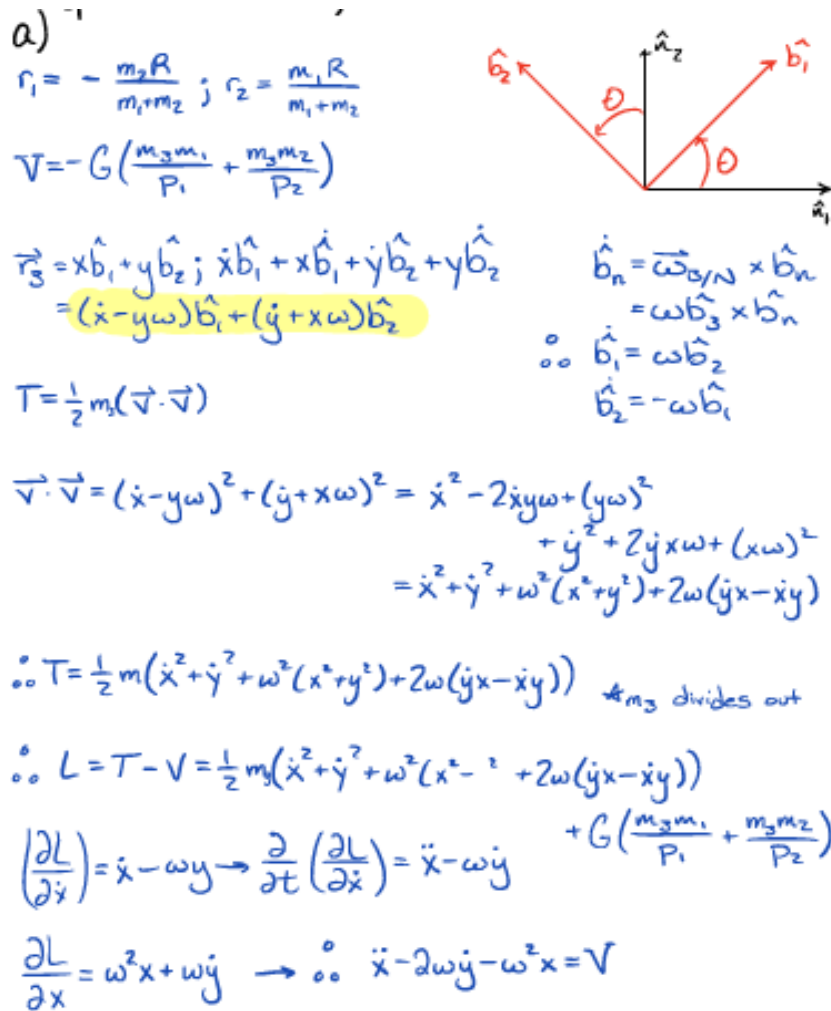 a)
r₁ = - m₂R/(m₁+m₂) ; r₂ = m₁R/(m₁+m₂)
V = -G(m₃m₁/P₁ + m₃m₂/P₂)
b̂₂ θ n̂₂ b̂₁ θ n̂₁
r⃗₃ = xb̂₁ + yb̂₂ ; ẋb̂₁ + xb̂̇₁ + ẏb̂₂ + yb̂̇₂
= (ẋ - yω)b̂₁ + (ẏ + xω)b̂₂
b̂̇ₙ = ω⃗_B/N × b̂ₙ
= ωb̂₃ × b̂ₙ
∴ b̂̇₁ = ωb̂₂
b̂̇₂ = -ωb̂₁
T = ½ m₃(v⃗ · v⃗)
v⃗ · v⃗ = (ẋ - yω)² + (ẏ + xω)² = ẋ² - 2ẋyω + (yω)²
+ ẏ² + 2ẏxω + (xω)²
= ẋ² + ẏ² + ω²(x² + y²) + 2ω(ẏx - ẋy)
∴ T = ½ m(ẋ² + ẏ² + ω²(x² + y²) + 2ω(ẏx - ẋy)) *m₃ divides out
∴ L = T - V = ½ m₃(ẋ² + ẏ² + ω²(x² - ² + 2ω(ẏx - ẋy))
+ G(m₃m₁/P₁ + m₃m₂/P₂)
(∂L/∂ẋ) = ẋ - ωy → ∂/∂t (∂L/∂ẋ) = ẍ - ωẏ
∂L/∂x = ω²x + ωẏ → ∴ ẍ - 2ωẏ - ω²x = V